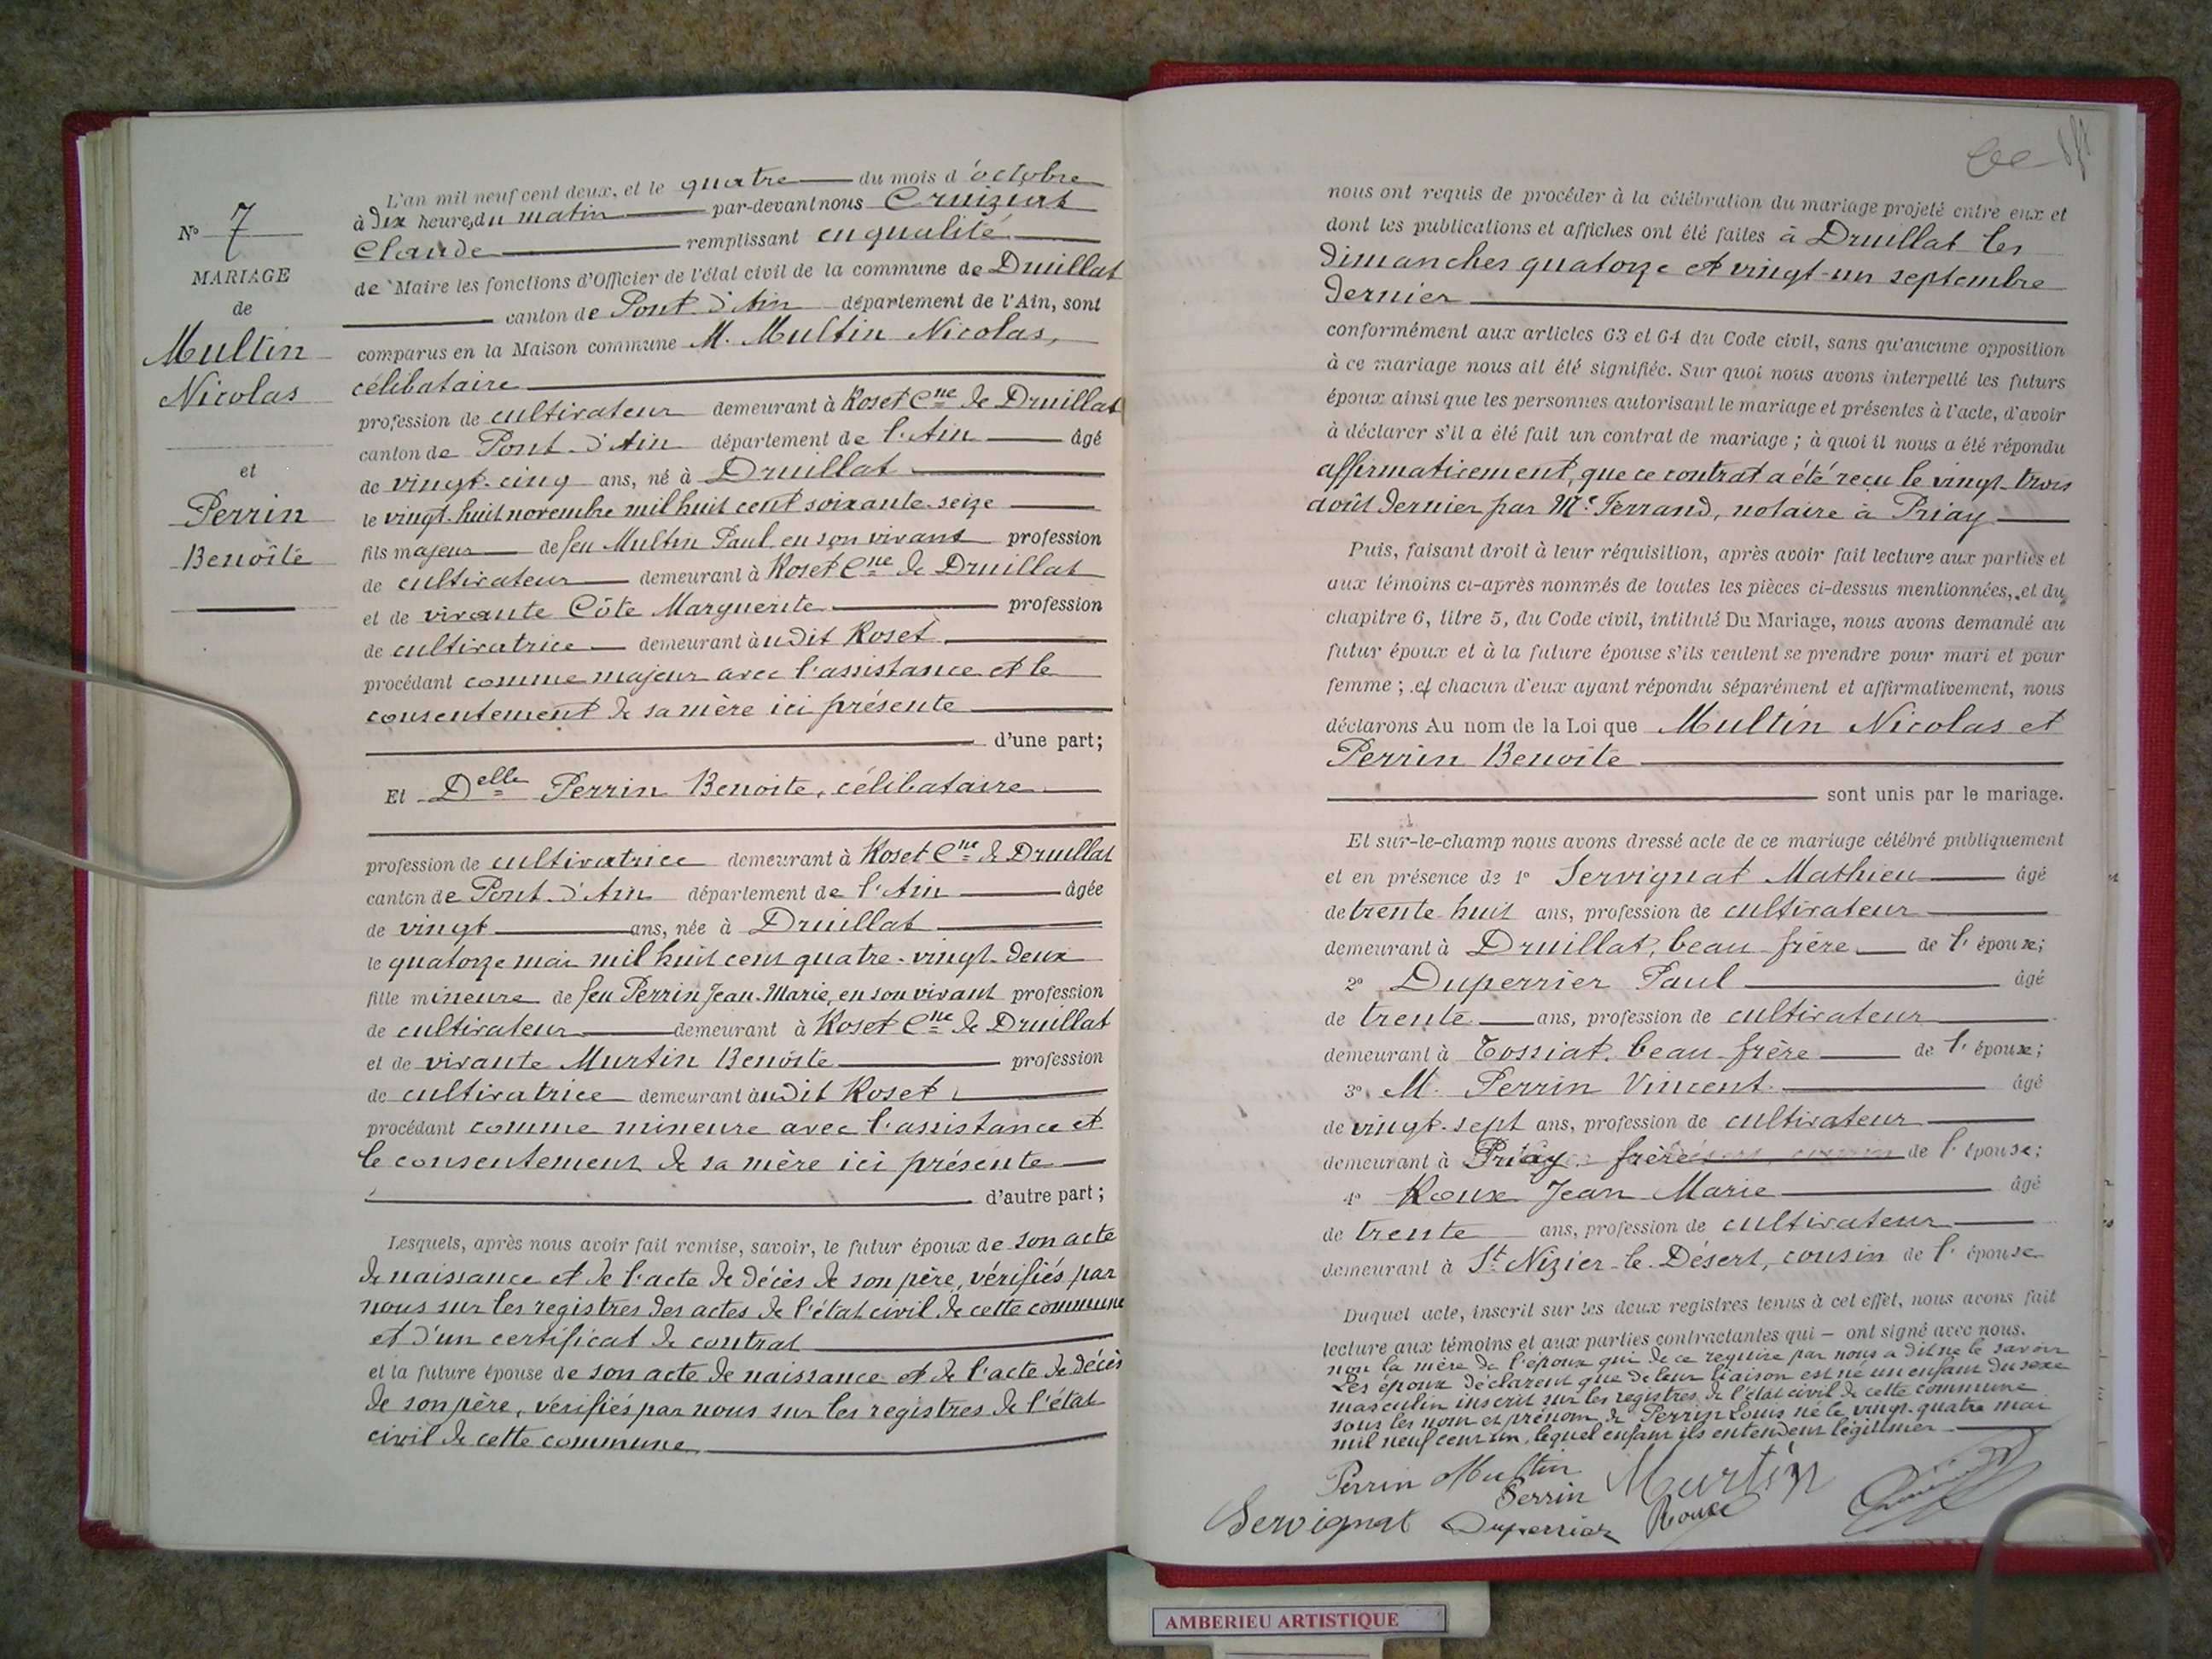 N° 7
MARIAGE
de
Multin
Nicolas
et
Perrin
Benoîte
L'an mil neuf cent deux, et le quatre du mois d'octobre
à dix heures du matin par-devant nous Cruiziat
Claude remplissant en qualité
de Maire les fonctions d'Officier de l'état civil de la commune de Druillat
canton de Pont-d'Ain département de l'Ain, sont
comparus en la Maison commune M. Multin Nicolas,
célibataire
profession de cultivateur demeurant à Roset Cne de Druillat
canton de Pont-d'Ain département de l'Ain âgé
de vingt-cinq ans, né à Druillat
le vingt-huit novembre mil huit cent soixante-seize
fils majeur de feu Multin Paul, en son vivant profession
de cultivateur demeurant à Roset Cne de Druillat
et de vivante Côte Marguerite profession
de cultivatrice demeurant audit Roset
procédant comme majeur avec l'assistance et le
consentement de sa mère ici présente
d'une part;
Et Delle Perrin Benoite, célibataire
profession de cultivatrice demeurant à Roset Cne de Druillat
canton de Pont-d'Ain département de l'Ain âgée
de vingt ans, née à Druillat
le quatorze mai mil huit cent quatre-vingt-deux
fille mineure de feu Perrin Jean-Marie, en son vivant profession
de cultivateur demeurant à Roset Cne de Druillat
et de vivante Murtin Benoîte profession
de cultivatrice demeurant audit Roset
procédant comme mineure avec l'assistance et
le consentement de sa mère ici présente
d'autre part;
Lesquels, après nous avoir fait remise, savoir, le futur époux de son acte
de naissance et de l'acte de décès de son père, vérifiés par
nous sur les registres des actes de l'état civil de cette commune
et d'un certificat de contrat
et la future épouse de son acte de naissance et de l'acte de décès
de son père, vérifiés par nous sur les registres de l'état
civil de cette commune,
nous ont requis de procéder à la célébration du mariage projeté entre eux et
dont les publications et affiches ont été faites à Druillat les
dimanches quatorze et vingt-un septembre
dernier
conformément aux articles 63 et 64 du Code civil, sans qu'aucune opposition
à ce mariage nous ait été signifiée. Sur quoi nous avons interpellé les futurs
époux ainsi que les personnes autorisant le mariage et présentes à l'acte, d'avoir
à déclarer s'il a été fait un contrat de mariage; à quoi il nous a été répondu
affirmativement, que ce contrat a été reçu le vingt-trois
août dernier par Me Ferrand, notaire à Priay
Puis, faisant droit à leur réquisition, après avoir fait lecture aux parties et
aux témoins ci-après nommés de toutes les pièces ci-dessus mentionnées, et du
chapitre 6, titre 5, du Code civil, intitulé Du Mariage, nous avons demandé au
futur époux et à la future épouse s'ils veulent se prendre pour mari et pour
femme; et chacun d'eux ayant répondu séparément et affirmativement, nous
déclarons Au nom de la Loi que Multin Nicolas et
Perrin Benoîte
sont unis par le mariage.
Et sur-le-champ nous avons dressé acte de ce mariage célébré publiquement
et en présence de 1° Servignat Mathieu âgé
de trente-huit ans, profession de cultivateur
demeurant à Druillat, beau-frère de l'épouse;
2° Duperrier Paul âgé
de trente ans, profession de cultivateur
demeurant à Tossiat, beau-frère de l'épouse;
3° M. Perrin Vincent âgé
de vingt-sept ans, profession de cultivateur
demeurant à Priay frère de l'épouse;
4° Roux Jean Marie âgé
de trente ans, profession de cultivateur
demeurant à St Nizier-le-Désert, cousin de l'épouse
Duquel acte, inscrit sur les deux registres tenus à cet effet, nous avons fait
lecture aux témoins et aux parties contractantes qui – ont signé avec nous.
non la mère de l'époux qui de ce requise par nous a dit ne le savoir
Les époux déclarent que de leur liaison est né un enfant du sexe
masculin inscrit sur les registres de l'état civil de cette commune
sous les nom et prénom de Perrin Louis né le vingt-quatre mai
mil neuf cent un, lequel enfant ils entendent légitimer
Perrin Multin Murtin
Perrin
Servignat Duperrier Roux
AMBERIEU ARTISTIQUE